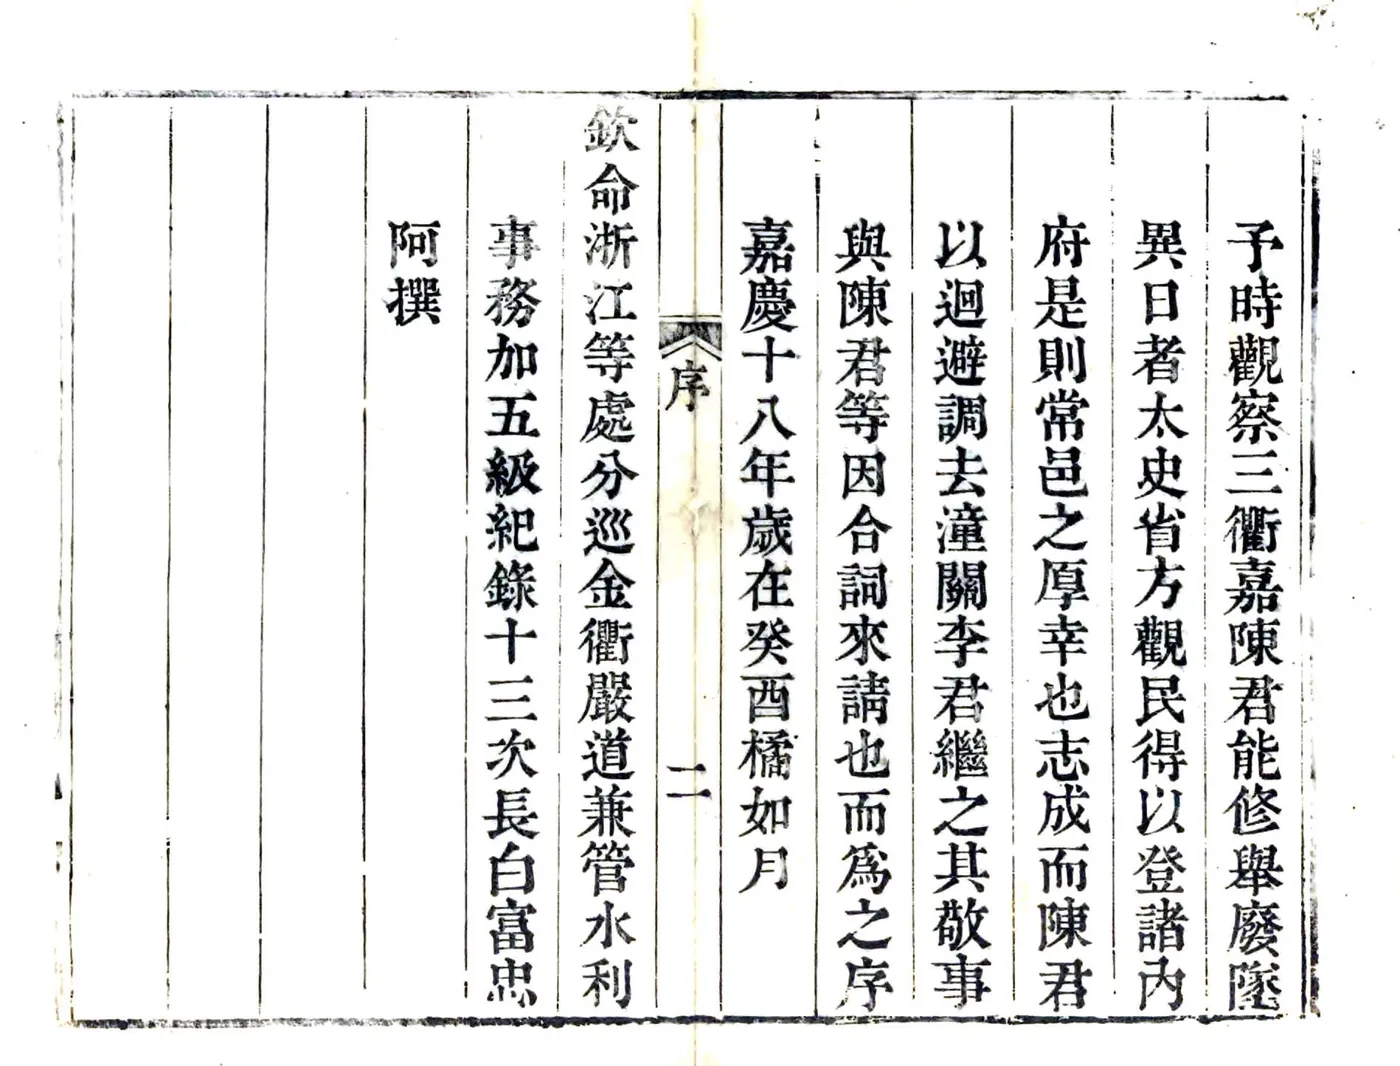 予時觀察三衢嘉陳君能修舉廢墜
異日者太史省方觀民得以登諸內
府是則常邑之厚幸也志成而陳君
以迴避調去潼關李君繼之其敬事
與陳君等因合詞來請也而爲之序
嘉慶十八年歲在癸酉橘如月
序
二
欽命浙江等處分巡金衢嚴道兼管水利
事務加五級紀錄十三次長白富忠
阿撰